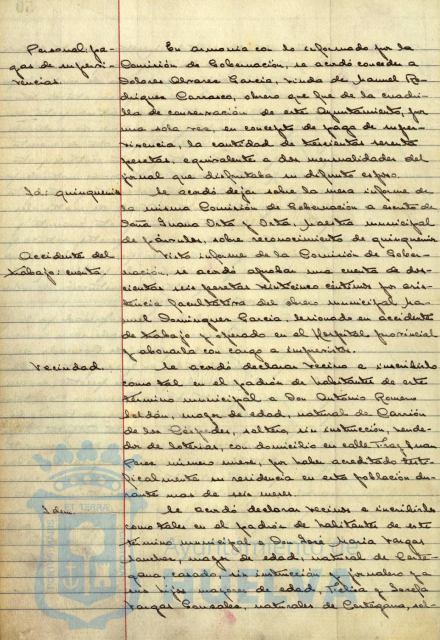 Personal: pa-
gas de supervi-
vencias.
En armonía con lo informado por la
Comisión de Gobernación, se acordó conceder a
Dolores Alvarez García, viuda de Manuel Ro-
driguez Carrasco, obrero que fue de la cuadri-
lla de conservación de este Ayuntamiento, por
una sola vez, en concepto de paga de super-
vivencia, la cantidad de trescientas sesenta
pesetas, equivalente a dos mensualidades del
jornal que disfrutaba su difunto esposo.
Id: quinquenio
Se acordó dejar sobre la mesa informe de
la misma Comisión de Gobernación a escrito de
Doña Juana Orta y Orta, Maestra municipal
de párvulos, sobre reconocimiento de quinquenio.
Accidente del
trabajo: cuenta.
Visto informe de la Comisión de Gober-
nación, se acordó aprobar una cuenta de dos-
cientas seis pesetas veinticinco céntimos por asis-
tencia facultativa del obrero municipal Ma-
nuel Dominguez García, lesionado en accidente
de trabajo y operado en el Hospital provincial
y abonarla con cargo a imprevistos.
Vecindad.
Se acordó declarar vecino e inscribirlo
como tal en el padrón de habitantes de este
término municipal a Don Antonio Romero
mayor de edad, natural de Carrión
de los Céspedes, soltero, sin instrucción, vende-
dor de loterías, con domicilio en calle Fray Juan
Perez número nueve, por haber acreditado testi-
ficalmente su residencia en esta población du-
rante mas de seis meses.
Idem.
Se acordó declarar vecinos e inscribirlos
como tales en el padrón de habitantes de este
término municipal a Don José María Vargas
Sanchez, mayor de edad, natural de Carte-
gana, casado, sin instrucción y jornalero y a
sus hijos mayores de edad, Felisa y Josefa
Vargas Gonzalez, naturales de Cortegana, sol-